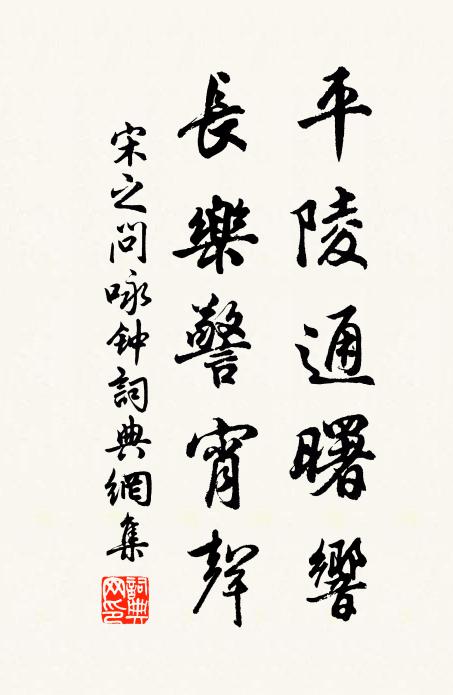 平陵通曙響
長樂警宵聲
宋之問咏钟詞典網集
詞典網印